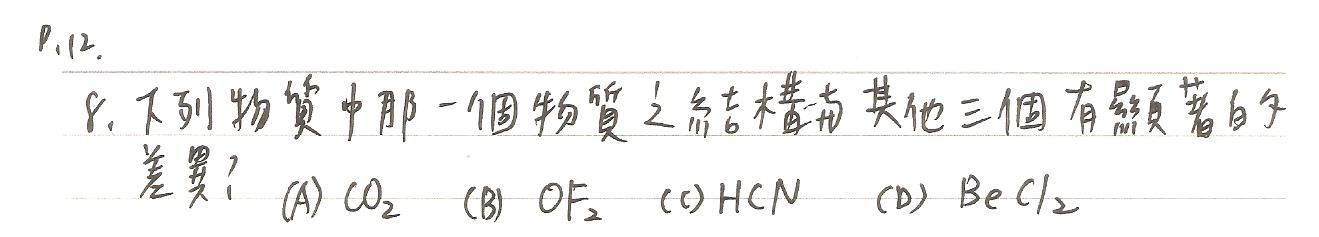 P.12.
8. 下列物質中那一個物質之結構與其他三個有顯著的
差異? (A) CO₂ (B) OF₂ (C) HCN (D) BeCl₂